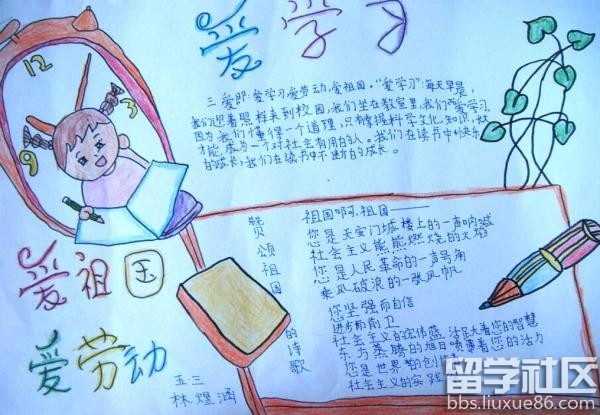 爱学习
三爱即:爱学习,爱劳动,爱祖国,"爱学习":每天早晨,
我们迎着照样来到校园,我们坐在教室里,我们"爱学习,
因为我们懂得一个道理,只有掌握科学文化知识,
才能成为一个对社会有用的人。我们在读书中快乐
的成长,我们在读书中不断的成长。
12
3
9
爱祖国
爱劳动
赞颂祖国的诗歌
祖国啊,祖国——
您是天安门城楼上的一声呐喊
社会主义熊熊燃烧的火焰
您是人民革命的一声号角
乘风破浪的一张风帆
您坚强而自信
进步而前卫
社会主义的宏伟蓝 活尼大着您的智慧
东方蒸腾的旭日喷薄着您的活力
您是世界的创
社会主义的实践
五三
林煜涵
留学社区
bbs.liuxue86.com